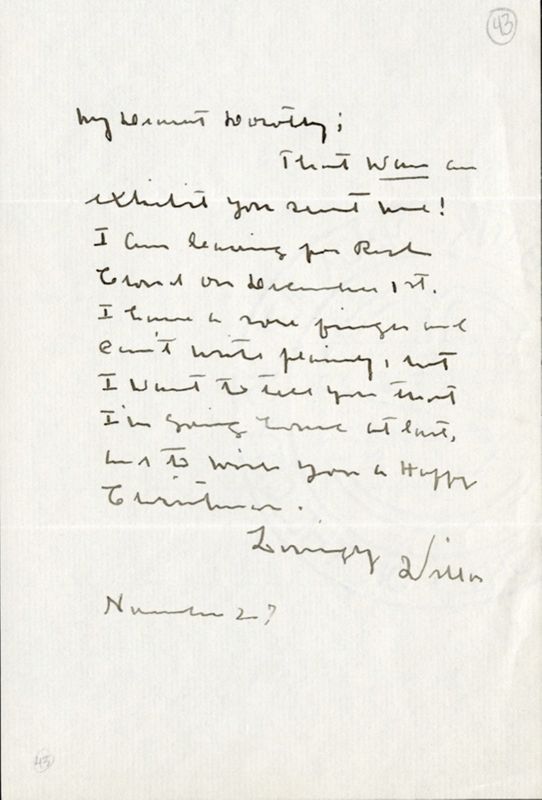 43
My Dearest Dorothy;
That was an
exhibit you sent me!
I am leaving for Red
Cloud on December 1st.
I have a sore finger and
can't write plainly, but
I want to tell you that
I'm going home at last,
and to wish you a Happy
Christmas.
Lovingly
Willa
November 27
43